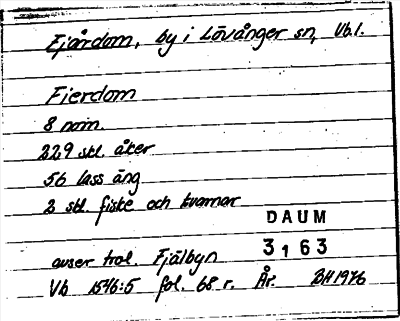 Fjärdom, by i Lövånger sn, Vb.l.
Fierdom
8 nom.
229 stl. åker
56 lass äng
2 stl. fiske och kvarnar
DAUM
3163
avser trol. Fjälbyn
Vb 1546:5 fol. 68 r. År. BH 1976